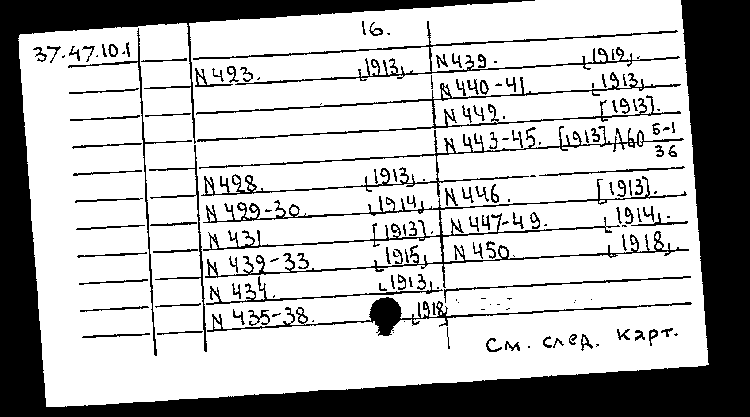 16.
37.47.10.1
N 423. [1913].
N 428. [1913].
N 429-30. [1914].
N 431 [1913].
N 432-33. [1915].
N 434. [1913].
N 435-38. [1918]
N 439. [1912].
N 440-41. [1913].
N 442. [1913].
N 443-45. [1913]. А60 5-1/36
N 446. [1913].
N 447-49. [1914].
N 450. [1918].
См. след. карт.